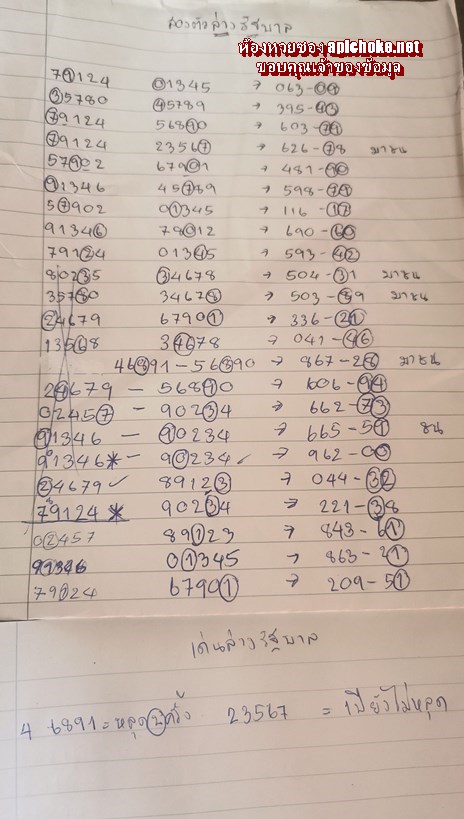 สองตัวล่างรัฐบาล
ห้องหวยซอง apichoke.net
ขอบคุณเจ้าของข้อมูล
79124 01345 → 063-09
35780 45789 → 395-43
79124 56890 → 603-79
79124 23567 → 626-78 มาชน
57902 67901 → 481-90
91346 45789 → 598-79
57902 01345 → 116-17
91346 78012 → 690-60
79124 01345 → 593-42
80235 34678 → 504-31 มาชน
35780 34678 → 503-89 มาชน
24679 67901 → 336-21
13568 34678 → 041-46
46891-56890 → 867-28 มาชน
24679 - 56890 → 606-94
02457 - 90234 → 662-73
91346 - 90234 → 665-51 ชน
91346* - 90234 ✓ → 962-00
24679 ✓ 89123 → 044-32
79124 * 90234 → 221-38
02457 89123 → 843-61
91346 01345 → 863-21
79124 67901 → 209-51
เด่นล่างรัฐบาล
4 6891 = หลุด 2 ครั้ง 23567 = 1ปียังไม่หลุด